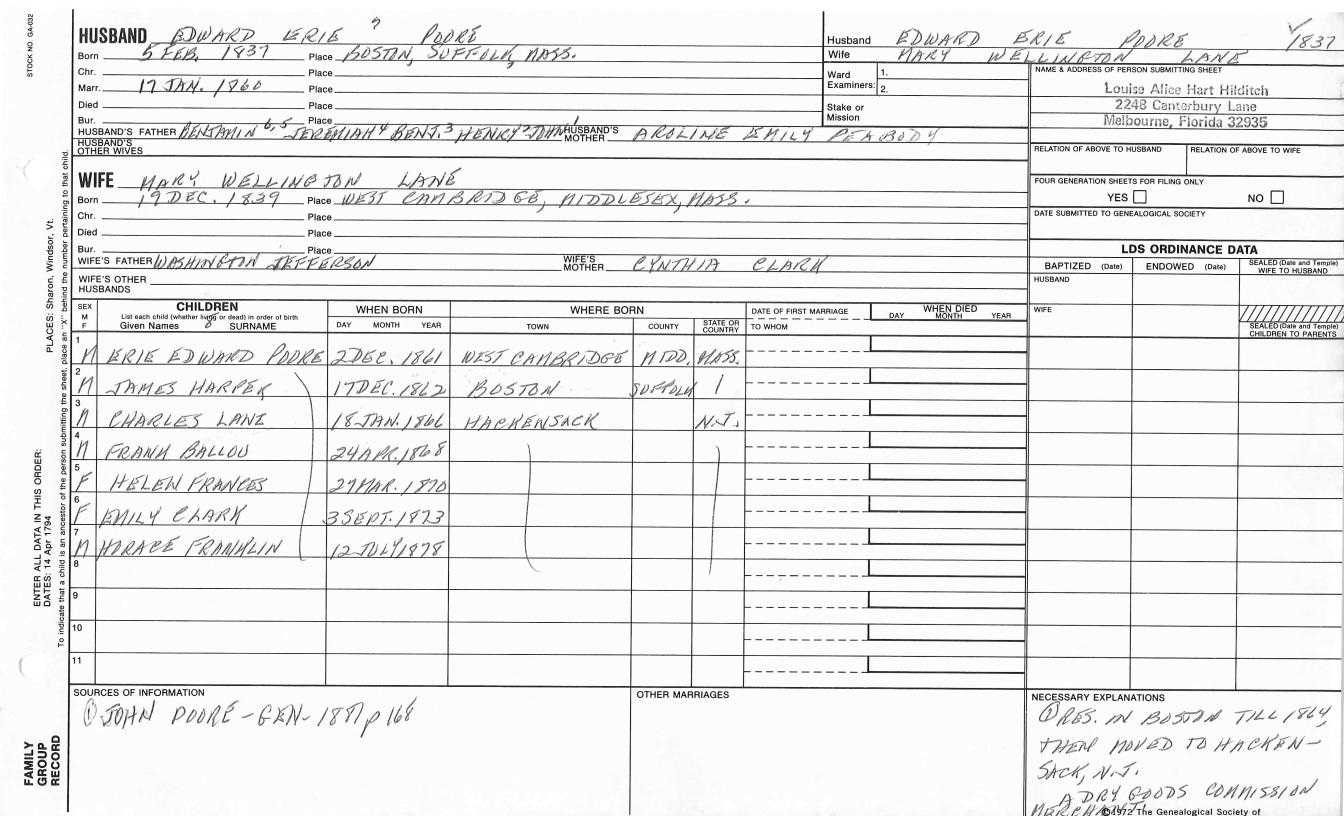 STOCK NO. GA-032
ENTER ALL DATA IN THIS ORDER:
DATES: 14 Apr 1794
PLACES: Sharon, Windsor, Vt.
To indicate that a child is an ancestor of the person submitting the sheet, place an "X" behind the number pertaining to that child.
FAMILY
GROUP
RECORD
HUSBAND EDWARD ERIE 7 POORE
Born 5 FEB. 1837 Place BOSTON, SUFFOLK, MASS.
Chr. Place
Marr. 17 JAN. 1860 Place
Died Place
Bur. Place
HUSBAND'S FATHER BENJAMIN 6,5 JEREMIAH 4 BENJ. 3 HENRY 2 JOHN 1 HUSBAND'S MOTHER AROLINE EMILY PEABODY
HUSBAND'S OTHER WIVES
WIFE MARY WELLINGTON LANE
Born 19 DEC. 1839 Place WEST CAMBRIDGE, MIDDLESEX, MASS.
Chr. Place
Died Place
Bur. Place
WIFE'S FATHER WASHINGTON JEFFERSON WIFE'S MOTHER CYNTHIA CLARK
WIFE'S OTHER HUSBANDS
Husband EDWARD ERIE POORE 1837
Wife MARY WELLINGTON LANE
Ward Examiners: 1.
2.
Stake or Mission
NAME & ADDRESS OF PERSON SUBMITTING SHEET
Louise Alice Hart Hilditch
2248 Canterbury Lane
Melbourne, Florida 32935
RELATION OF ABOVE TO HUSBAND RELATION OF ABOVE TO WIFE
FOUR GENERATION SHEETS FOR FILING ONLY
YES NO
DATE SUBMITTED TO GENEALOGICAL SOCIETY
LDS ORDINANCE DATA
BAPTIZED (Date) ENDOWED (Date) SEALED (Date and Temple) WIFE TO HUSBAND
HUSBAND
WIFE
SEALED (Date and Temple) CHILDREN TO PARENTS
SEX M F CHILDREN WHEN BORN WHERE BORN DATE OF FIRST MARRIAGE WHEN DIED
List each child (whether living or dead) in order of birth
Given Names 8 SURNAME DAY MONTH YEAR TOWN COUNTY STATE OR COUNTRY TO WHOM DAY MONTH YEAR
1 M ERIE EDWARD POORE 2 DEC. 1861 WEST CAMBRIDGE MIDD. MASS.
2 M JAMES HARPER 17 DEC. 1862 BOSTON SUFFOLK
3 M CHARLES LANE 18 JAN. 1866 HACKENSACK N.J.
4 M FRANK BALLOU 24 APR. 1868
5 F HELEN FRANCES 27 MAR. 1870
6 F EMILY CLARK 3 SEPT. 1873
7 M HORACE FRANKLIN 12 JULY 1878
8
9
10
11
SOURCES OF INFORMATION
① JOHN POORE - GEN - 1881 p 168
OTHER MARRIAGES
NECESSARY EXPLANATIONS
① RES. IN BOSTON TILL 1864,
THEN MOVED TO HACKEN-
SACK, N.J.
A DRY GOODS COMMISSION
MERCHANT.
©1972 The Genealogical Society of